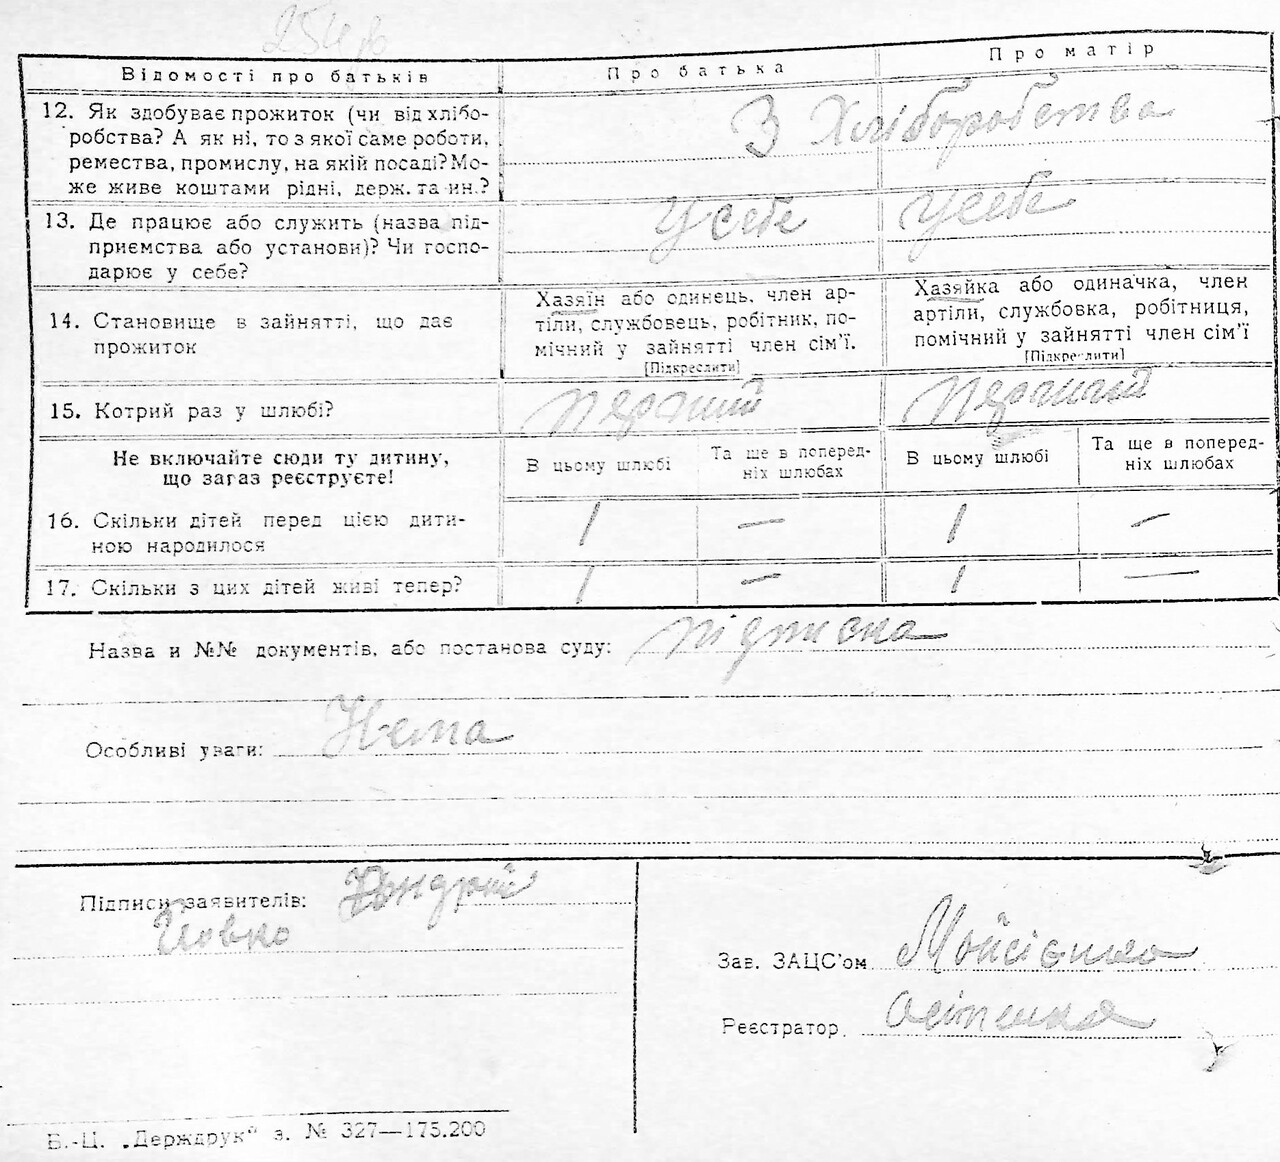 254 зв
Відомості про батьків
Про батька
Про матір
12. Як здобуває прожиток (чи від хлібо-
робства? А як ні, то з якої саме роботи,
ремества, промислу, на якій посаді? Мо-
же живе коштами рідні, держ. та ин.?
З Хліборобства
13. Де працює або служить (назва під-
приємства або установи)? Чи госпо-
дарює у себе?
У себе
У себе
14. Становище в зайнятті, що дає
прожиток
Хазяїн або одинець, член ар-
тіли, службовець, робітник, по-
мічний у зайнятті член сім'ї.
[Підкреслити]
Хазяйка або одиначка, член
артіли, службовка, робітниця,
помічний у зайнятті член сім'ї
[Підкреслити]
15. Котрий раз у шлюбі?
Перший
Перший
Не включайте сюди ту дитину,
що зараз реєструєте!
В цьому шлюбі
Та ще в поперед-
ніх шлюбах
В цьому шлюбі
Та ще в поперед-
ніх шлюбах
16. Скільки дітей перед цією дити-
ною народилося
1
—
1
—
17. Скільки з цих дітей живі тепер?
1
—
1
—
Назва и №№ документів, або постанова суду: підписка
Особливі уваги: Нема
Підписи заявителів: Андрій
Йовко
Зав. ЗАЦС'ом Мойсієнко
Реєстратор
Б.-Ц. „Держдрук" з. № 327—175.200